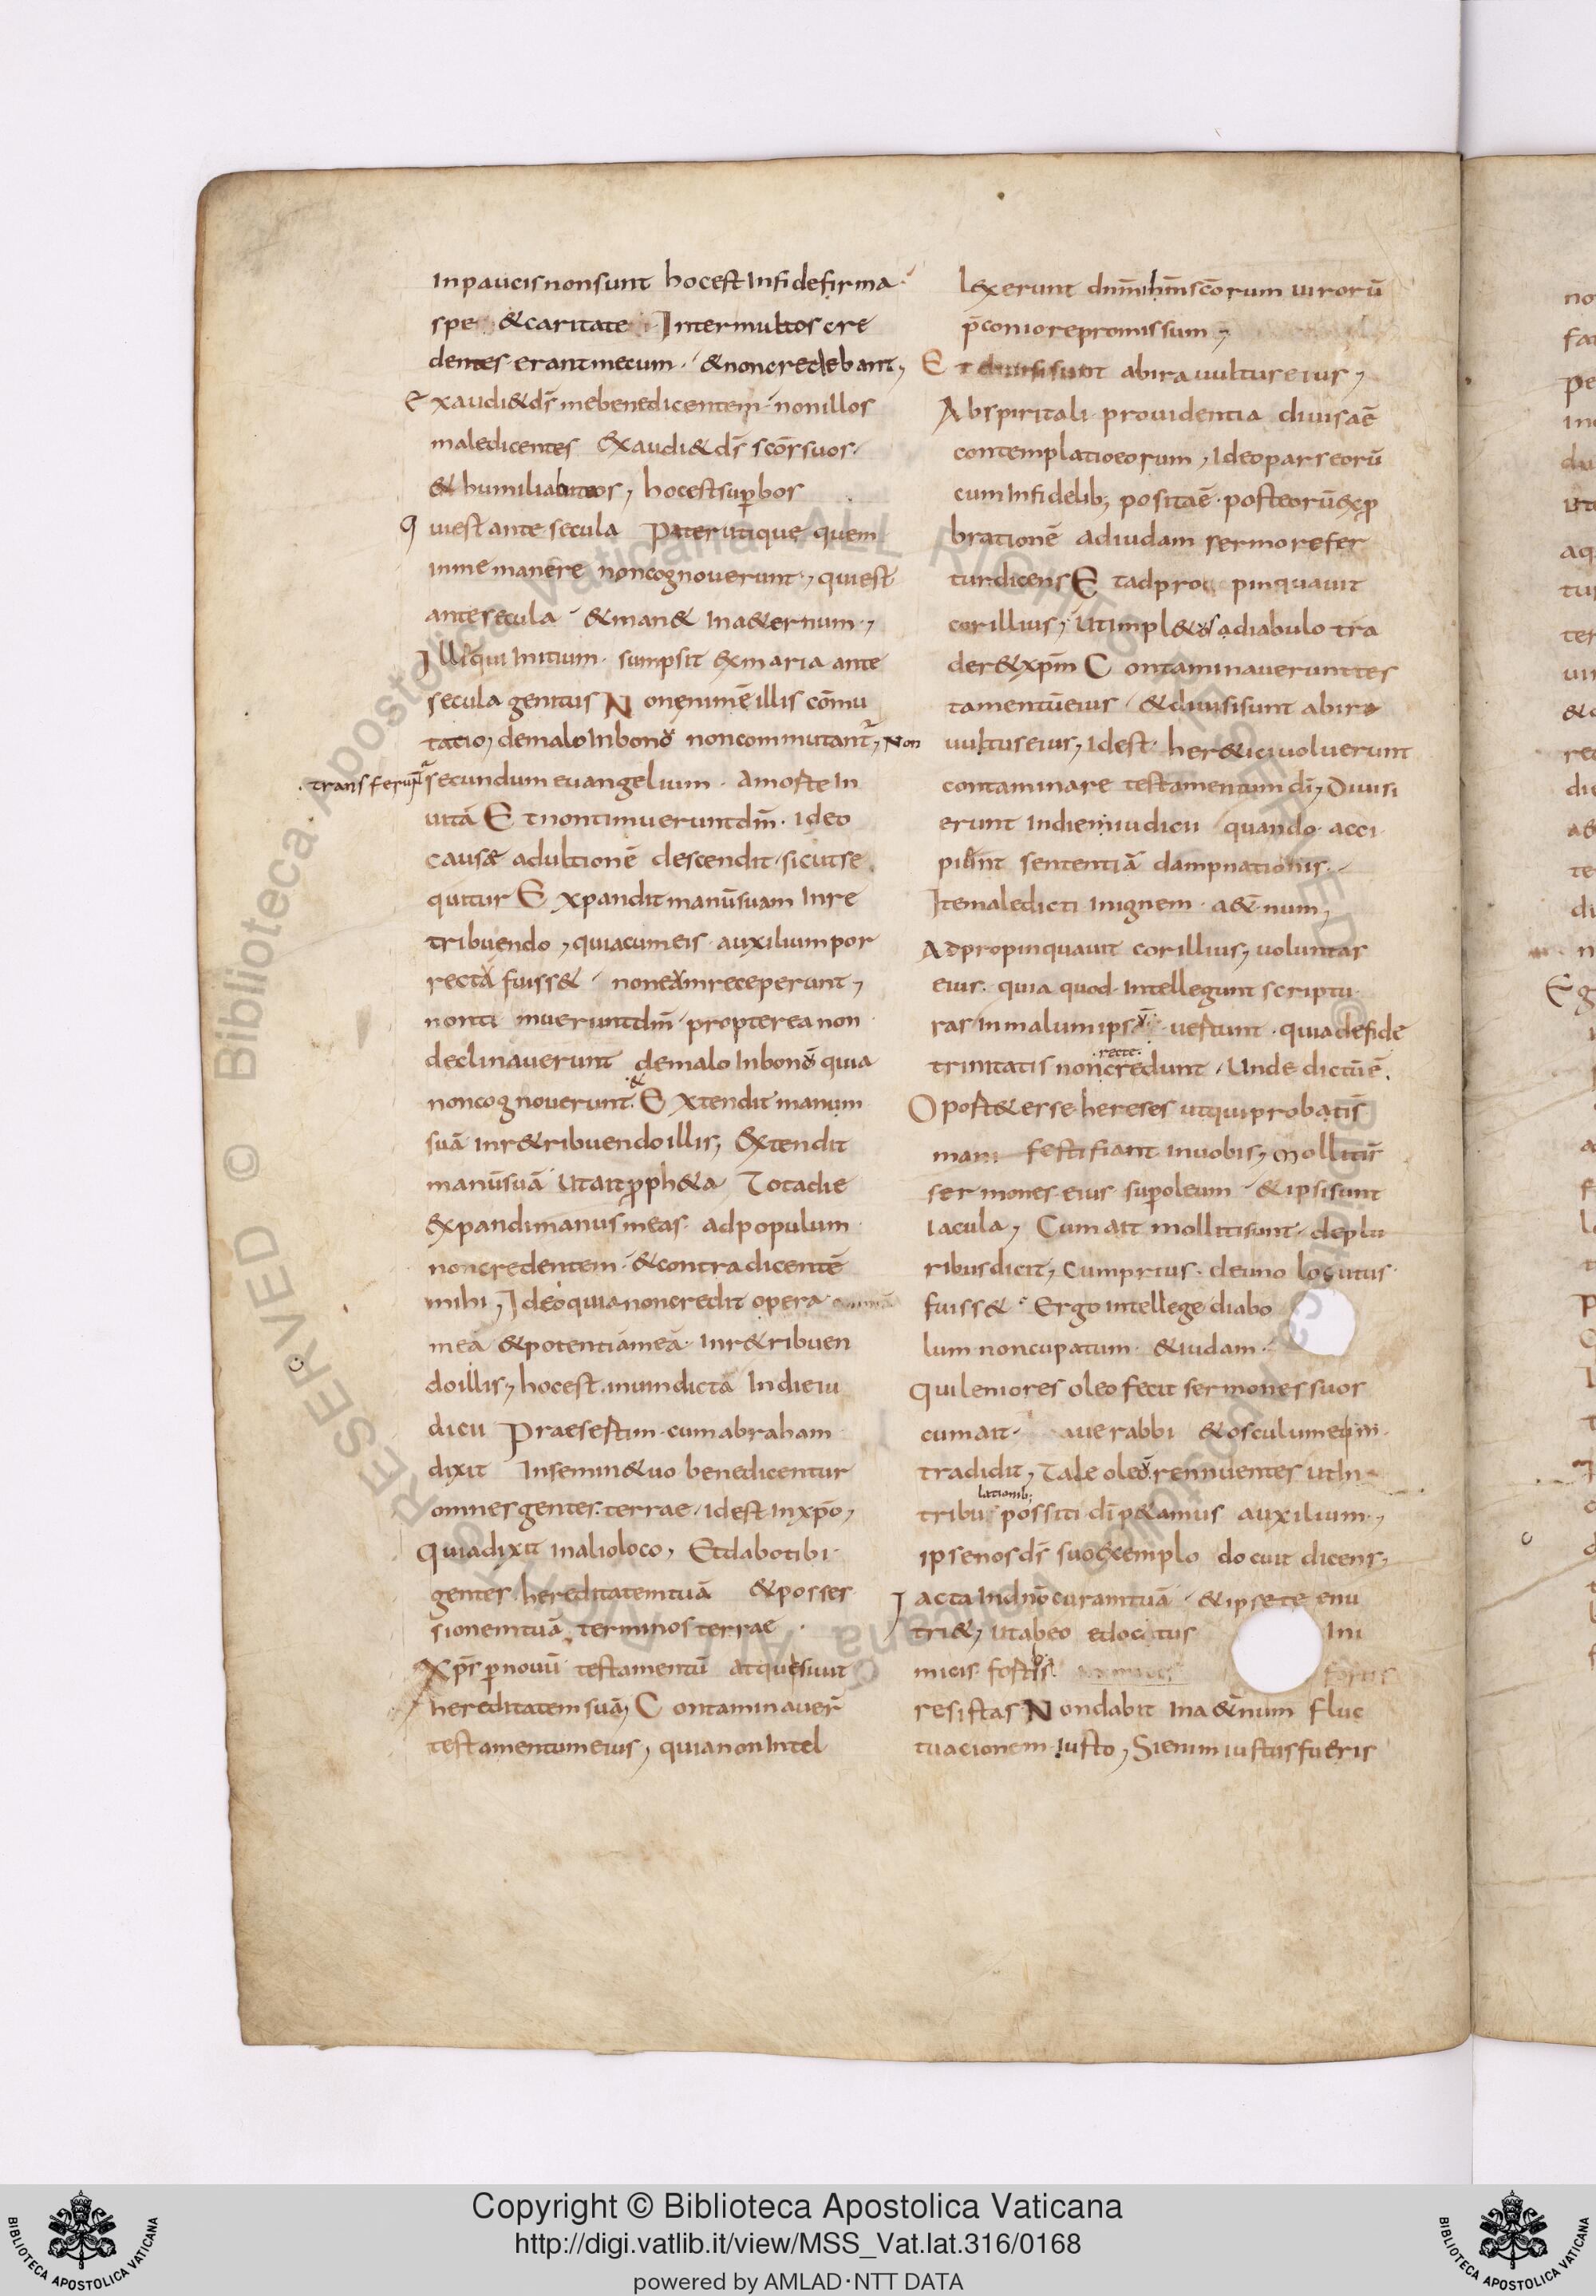 In paucis non sunt hoc est In fide firma
spe & caritate Inter multos cre
dentes erant mecum · & non credebant,
Exaudi& ds̄ me benedicentem · non illos
maledicentes Exaudi& ds̄ scōs suos ·
& humiliabit eos, hoc est sup̄bos
qui est ante secula Pater utique quem
in me manere non cognoverunt, qui est
ante secula & man& In a&ernum,
Ille qui Initium sumpsit ex maria ante
secula genitus Non enim ē illis cōmu
tatio, de malo In bono non commutant, Non
transferunt secundum evangelium · A morte In
vitā Et non timuerunt dm̄ · Ideo
causa descendit · sicut se
quitur Expandit manū suam In re
tribuendo, quia cum eis auxilium por
recta fuiss& non receperunt,
non timuerunt dm̄ propterea non
declinaverunt de malo In bonō quia
non cognoverunt · & Extendit manum
suā In r&ribuendo illis, Extendit
manū suā Ut ait pph&a Tota die
Expandi manus meas · ad populum
non credentem · & contradicentē
mihi, Ideo quia non credit opera
mea & potentiā meā · In r&ribuen
do illis, hoc est In vindictā In die iu
dicii Praesertim · cum abraham
dixit In semin& uo benedicentur
omnes gentes · terrae · Id est In xpō,
Quia dixit in alio loco, Et dabo tibi ·
gentes hereditatem tuā & posses
sionem tuā terminos terrae
Xps̄ p novū testamentū adquesivit
hereditatem suā, Contaminaver̄
testamentum eius, quia non Intel
lexerunt dnm̄ ihm̄ scōrum virorū
p̄conio repromissum,
Et divisi sunt ab ira vultus eius,
Ab spiritali providentia divisa ē
contemplatio eorum, Ideo pars eorū
cum Infidelib; posita ē · post eorū exp
brationē ad iudam sermo refer
tur dicens Et adpropinquavit
cor illius, Ut impl&us a diabulo tra
der& xpm̄ Contaminaverunt tes
tamentū eius & divisi sunt ab ira
vultus eius, Id est her&ici voluerunt
contaminare testamentum dī, Divisi
erunt In diem iudicii quando acci
piunt sententiā dampnationis ·
Ite maledicti in ignem a&num,
Adpropinquavit cor illius, voluntas
eius quia quod Intellegunt scriptu
ras In malum ipsā vertunt · quia de fide
trinitatis non recte credunt, Unde dictū ē
Oport& esse hereses ut qui probati s̄
manifesti fiant in vobis, Molliti s̄
sermones eius super oleum & ipsi sunt
iacula, Cum ait molliti sunt · de plu
ribus dicit, Cum prius · de uno locutus
fuiss& Ergo intellege diabo
lum noncupatum & iudam ·
Qui leniores oleo fecit sermones suos
cum ait · ave rabbi & osculum ei
tradidit, Tale oleū rennuentes ut In
tribulationib; possiti dī p&amus auxilium,
ipse nos ds̄ suo exemplo docuit dicens,
Iacta In dnō curam tuā & ipse te enu
tri&, Ut ab eo edoctus Ini
micis fortis
resistas Non dabit In a&ernum fluc
tuacionem iusto, Si enim iustus fueris
Copyright © Biblioteca Apostolica Vaticana
http://digi.vatlib.it/view/MSS_Vat.lat.316/0168
powered by AMLAD·NTT DATA